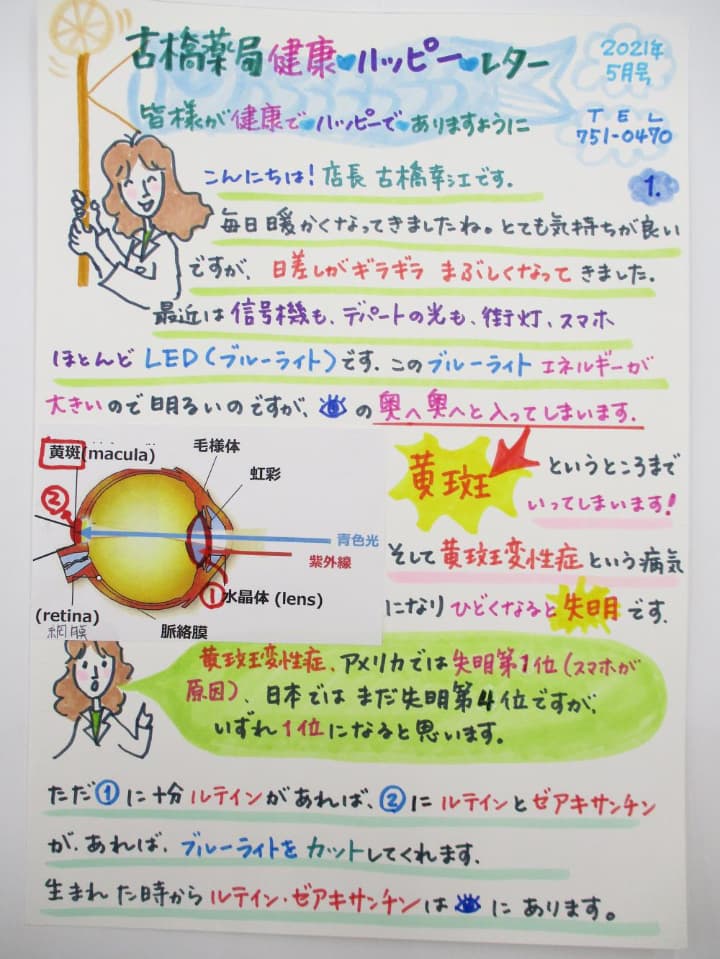 古橋薬局健康ハッピーレター
2021年
5月号
皆様が健康でハッピーでありますように
TEL
751-0470
こんにちは!店長 古橋幸江です.
1.
毎日暖かくなってきましたね。とても気持ちが良い
ですが、日差しがギラギラ まぶしくなってきました.
最近は信号機も、デパートの光も、街灯、スマホ
ほとんどLED(ブルーライト)です.このブルーライト エネルギーが
大きいので明るいのですが、の奥へ奥へと入ってしまいます.
黄斑(macula)
毛様体
虹彩
②
青色光
紫外線
①水晶体 (lens)
(retina)
網膜
脈絡膜
黄斑 というところまで
いってしまいます!
そして黄斑変性症という病気
になり ひどくなると失明です.
黄斑変性症、アメリカでは失明第1位(スマホが
原因)、日本では まだ失明第4位ですが、
いずれ1位になると思います.
ただ①に十分ルテインがあれば、②にルテインとゼアキサンチン
が、あれば、ブルーライトをカットしてくれます.
生まれた時からルテイン・ゼアキサンチンは にあります。